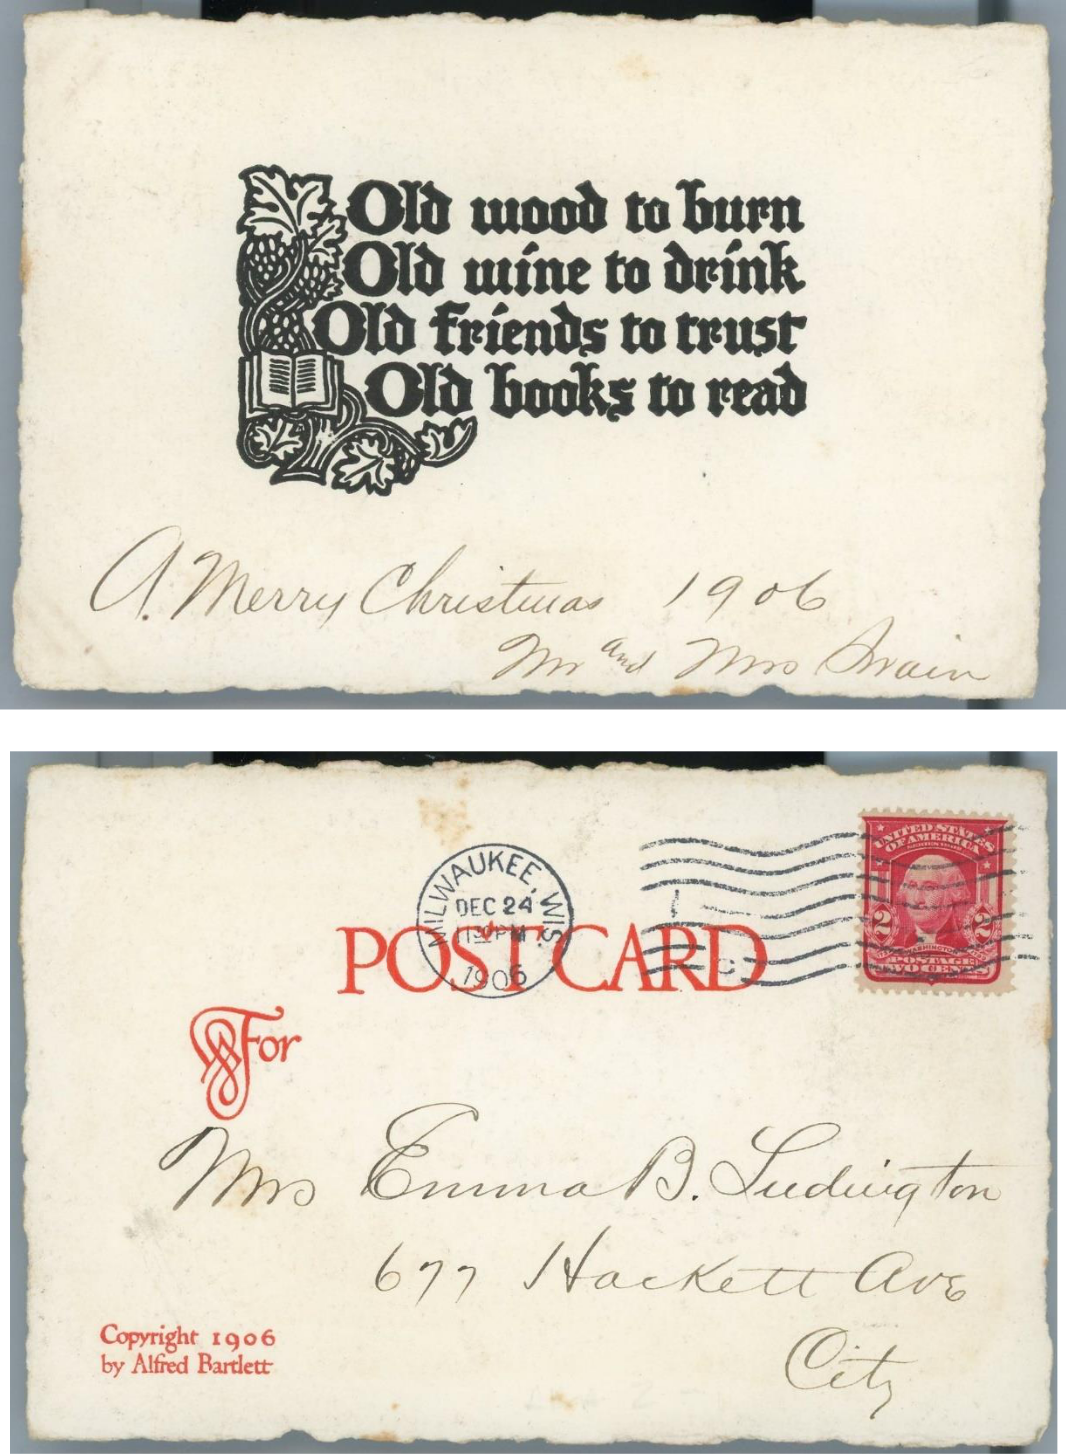 Old wood to burn
Old wine to drink
Old friends to trust
Old books to read
A. Merry Christmas 1906
Mr and Mrs Swain
MILWAUKEE, WIS.
DEC 24
1906
UNITED STATES
OF AMERICA
SERIES 1902
2 2
WASHINGTON
POSTAGE
TWO CENTS
POST CARD
For
Mrs Emma B. Ludington
677 Hackett Ave
City
Copyright 1906
by Alfred Bartlett